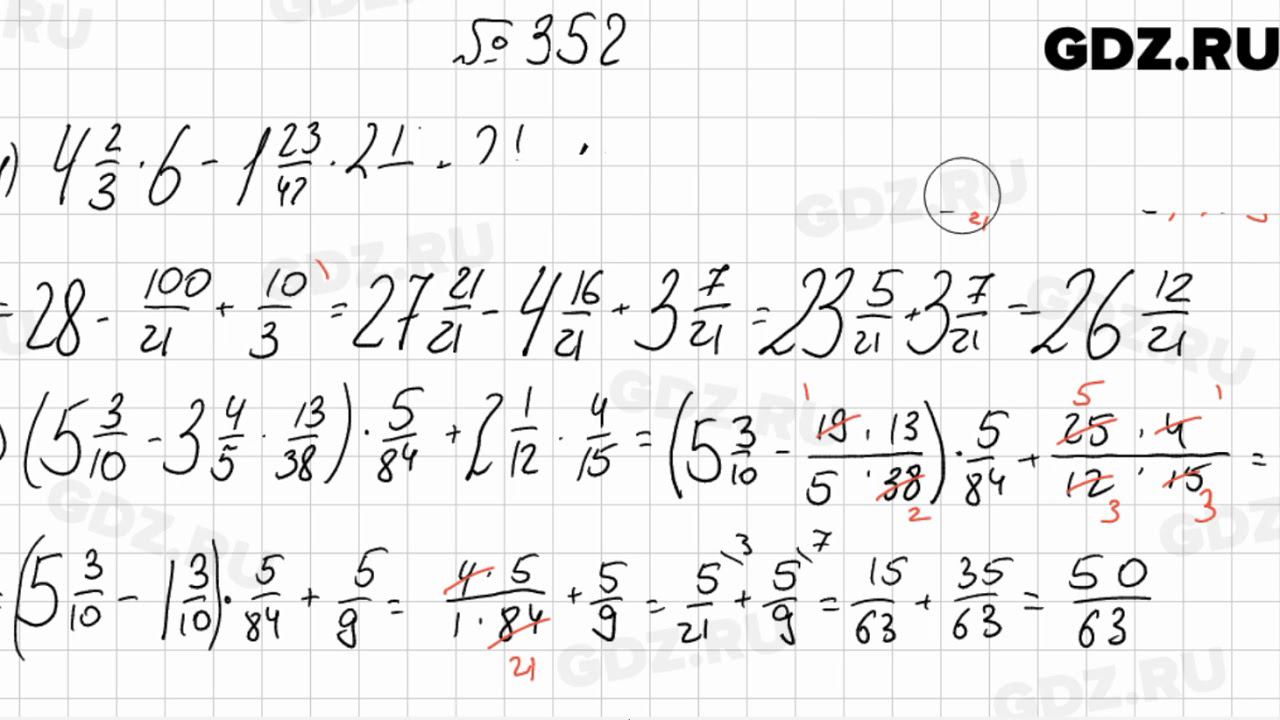 № 352
GDZ.RU
) 4 2/3 · 6 - 1 23/42 · 2 1
= 28 - 100/21 + 10/3 \ = 27 21/21 - 4 16/21 + 3 7/21 = 23 5/21 + 3 7/21 = 26 12/21
) (5 3/10 - 3 4/5 · 13/38) · 5/84 + 2 1/12 · 4/15 = (5 3/10 - 19 · 13 / 5 · 38) · 5/84 + 25 · 4 / 12 · 15 =
1 2 5 1 3 3
= (5 3/10 - 1 3/10) · 5/84 + 5/9 = 4 · 5 / 1 · 84 + 5/9 = 5/21 \3 + 5/9 \7 = 15/63 + 35/63 = 50/63
21